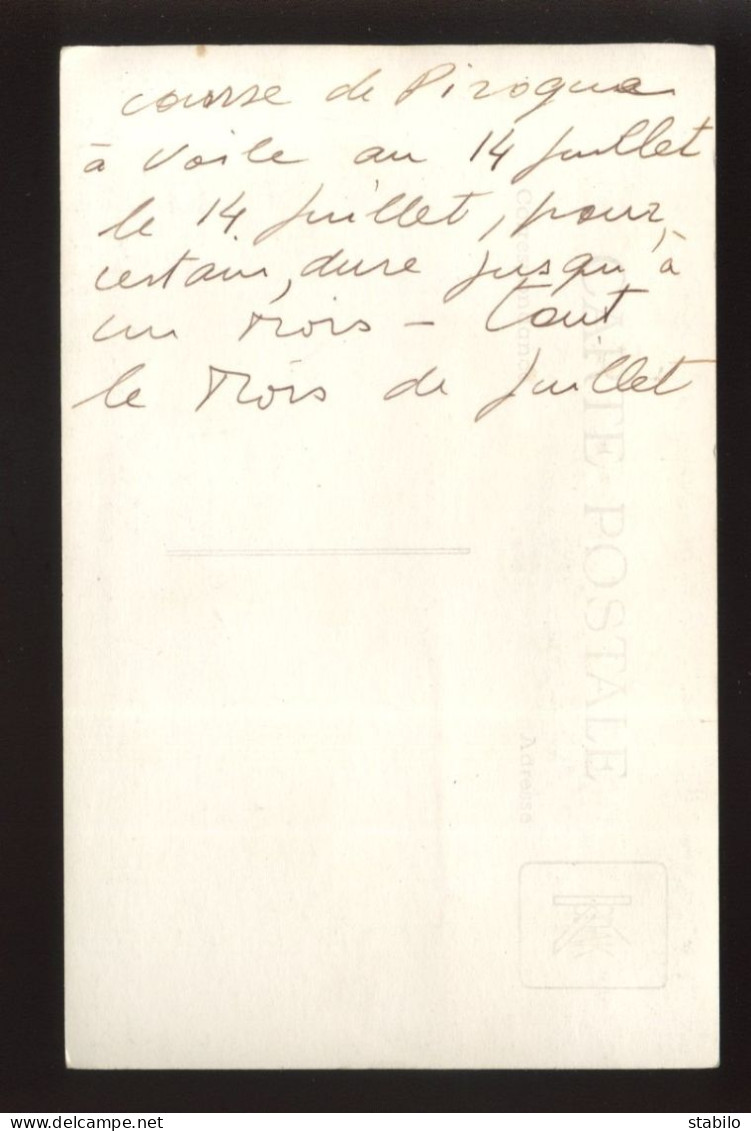 course de Pirogue
à voile au 14 juillet
le 14 juillet, pour
certain, dure jusqu'à
un Mois - tout
le Mois de juillet
CARTE POSTALE
Correspondance
Adresse
delcampe.net
stabilo